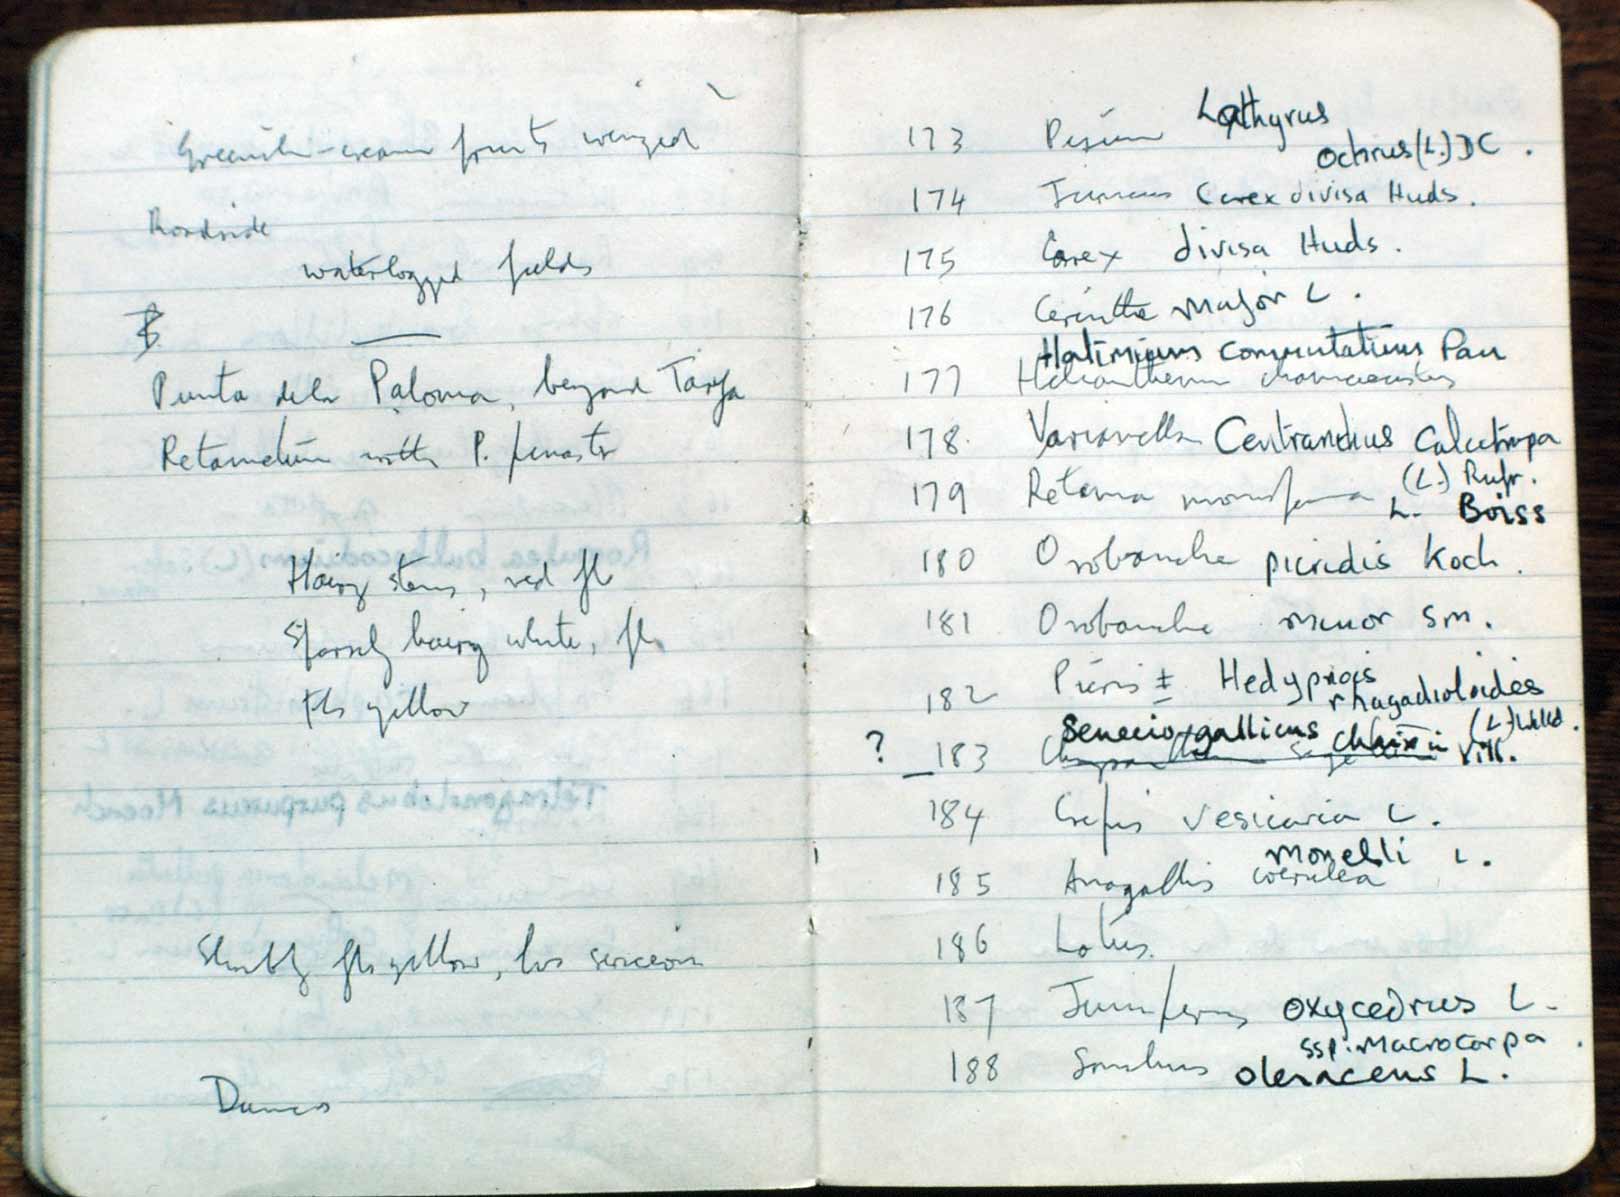 Greenish-cream fruits winged
Roadside
waterlogged fields
Punta dela Paloma, beyond Tarifa
Retametum with P. pinaster
Hairy stems, red fls
Sparsely hairy white, fls
Fls yellow
Shrubby fls yellow, lvs
Dunes
173 Pisum Lathyrus
ochrus (L.) DC .
174 Juncus Carex divisa Huds.
175 Carex divisa Huds.
176 Cerinthe major L.
Halimium commutatum Pau
177 Helianthemum
178. Valerianella Centranthus Calcitrapa
(L.) Rufr.
179 Retama monosperma L. Boiss
180 Orobanche picridis Koch.
181 Orobanche minor Sm.
182 Picris ± Hedypnois
rhagadioloides
(L.) Willd.
Senecio gallicus chaixii Vill.
? 183
184 Crepis vesicaria L.
Monelli L.
185 Anagallis coerulea
186 Lotus.
187 Juniperus oxycedrus L.
ssp. Macrocarpa .
188 Sonchus oleraceus L.